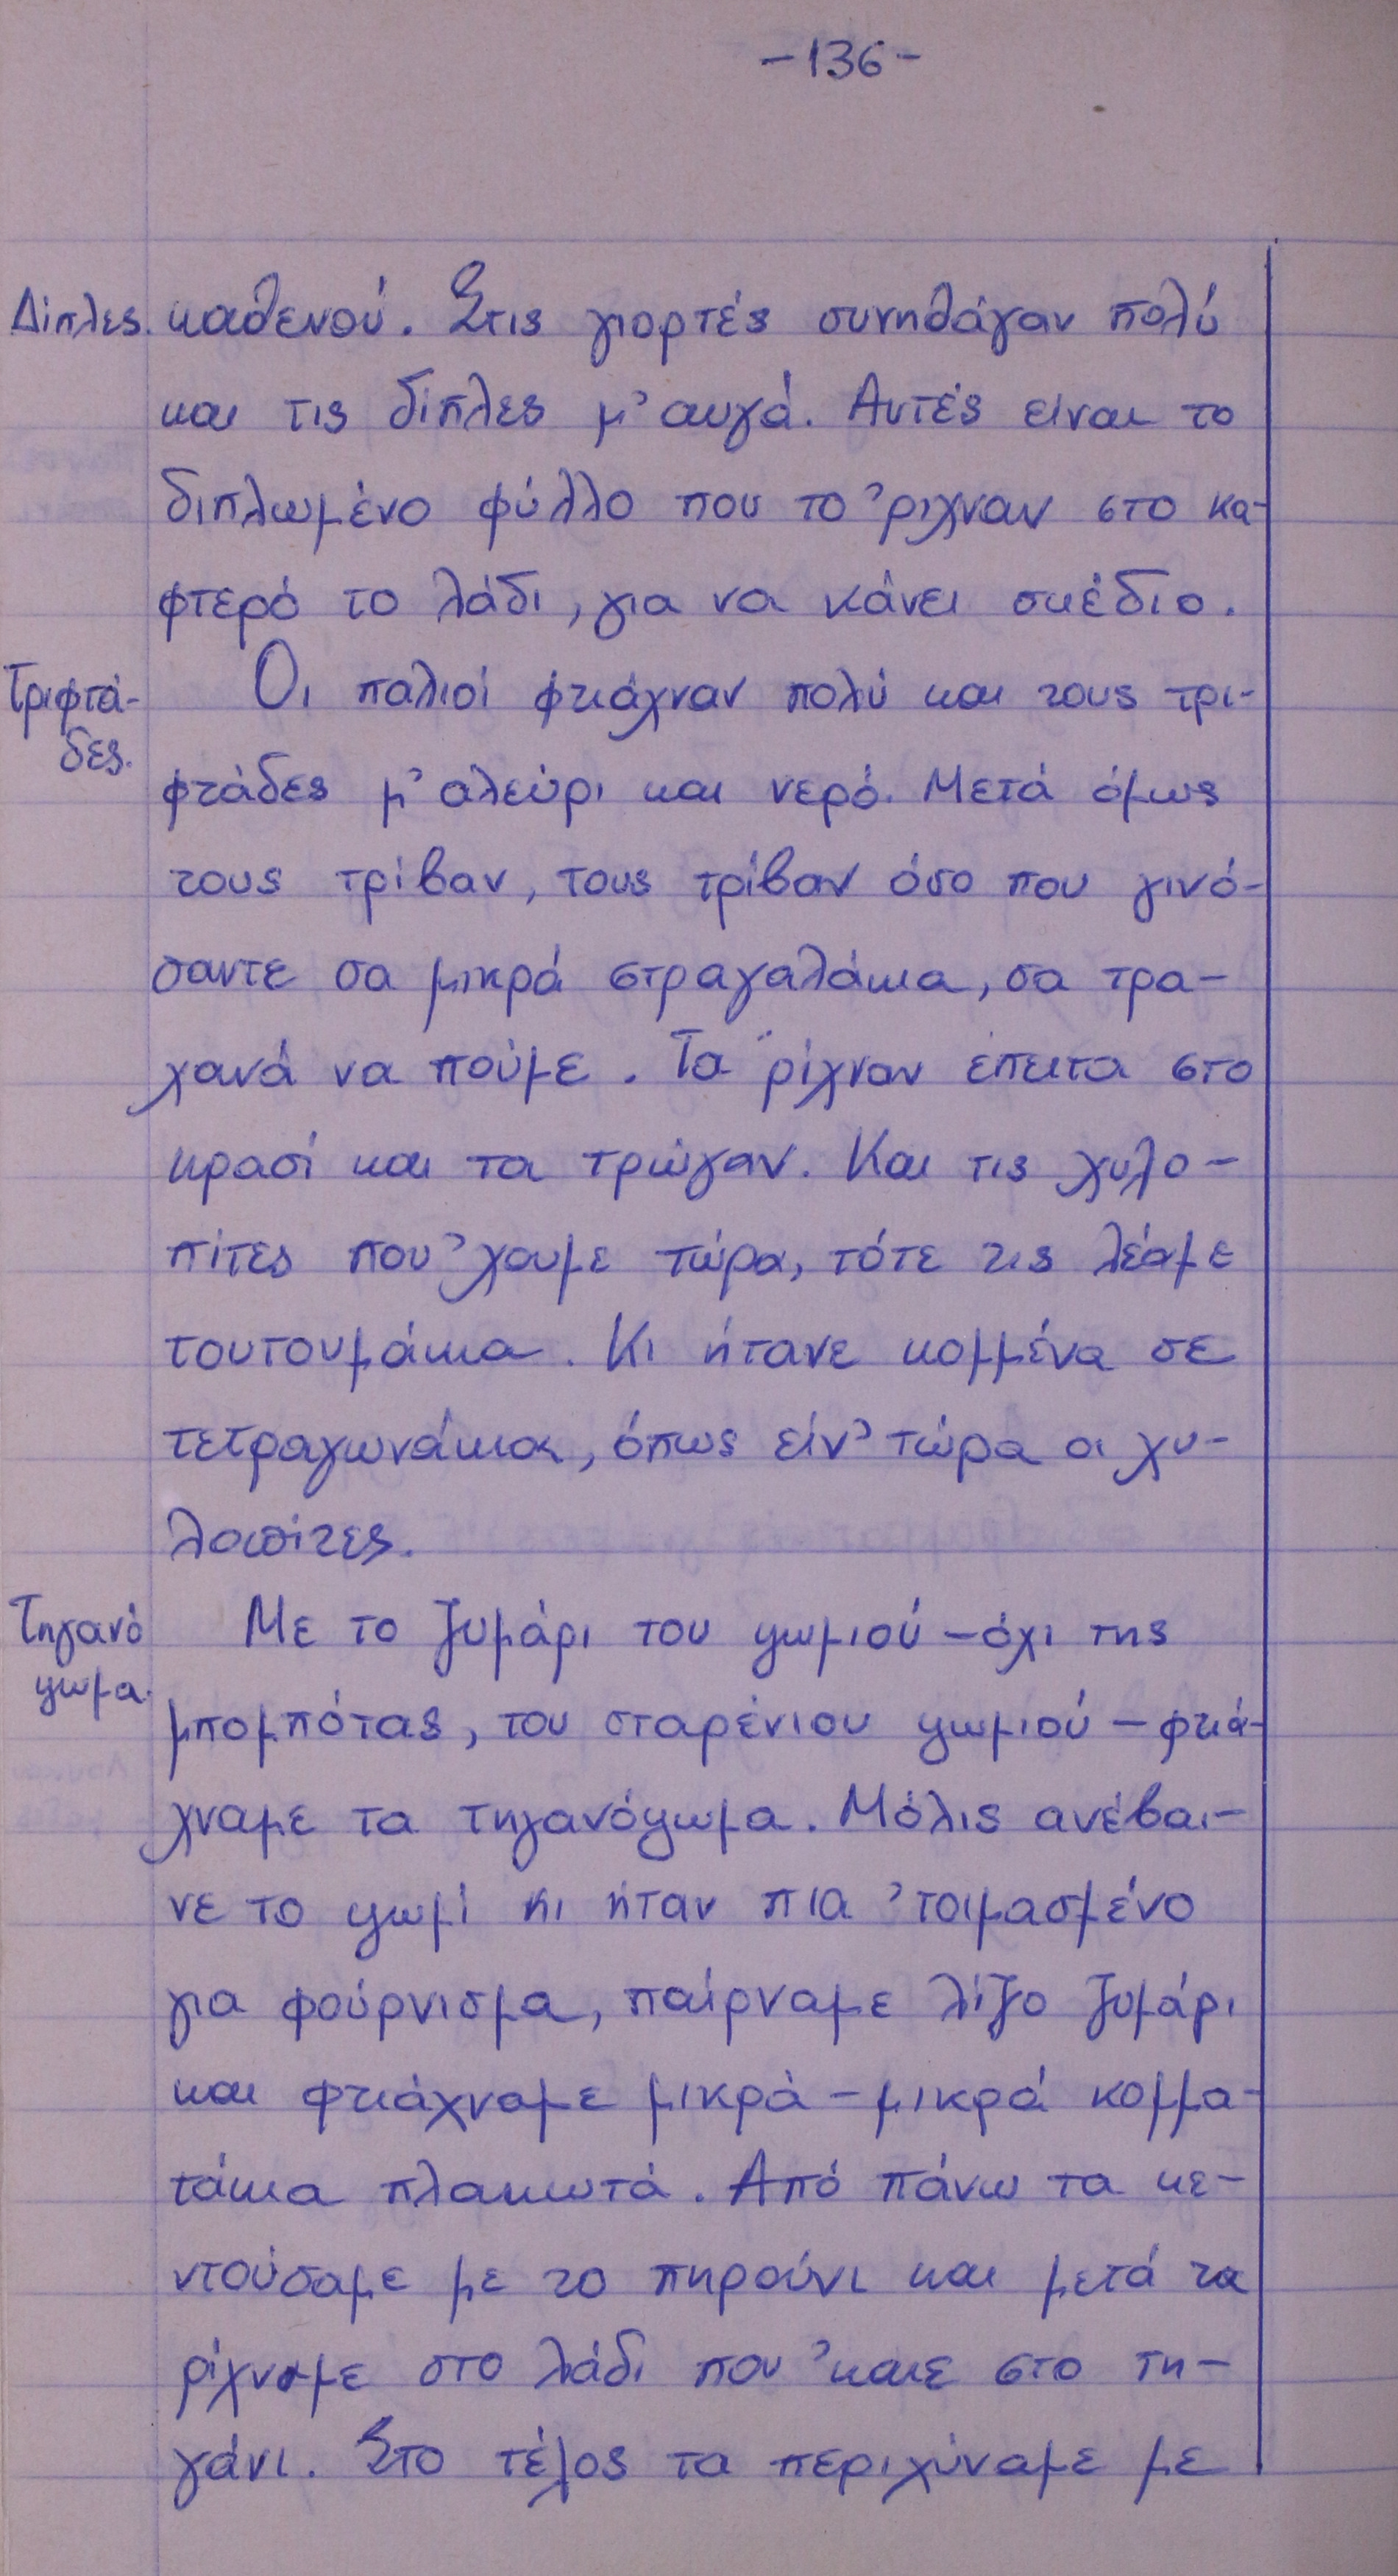 -136-
Δίπλες. καθενού. Στις γιορτές συνηθάγαν πολύ
και τις δίπλες μ' αυγά. Αυτές είναι το
διπλωμένο φύλλο που το 'ριχναν στο κα-
φτερό το λάδι, για να κάνει σκέδιο.
Τριφτά- Οι παλιοί φτιάχναν πολύ και τους τρι-
δες.
φτάδες μ' αλεύρι και νερό. Μετά όμως
τους τρίβαν, τους τρίβαν όσο που γινό-
σαντε σα μικρά στραγαλάκια, σα τρα-
χανά να πούμε. Τα ρίχναν έπειτα στο
κρασί και τα τρώγαν. Και τις χυλο-
πίτες που 'χουμε τώρα, τότε τις λέαμε
τουτουμάκια. Κι ήτανε κομμένα σε
τετραγωνάκια, όπως είν' τώρα οι χυ-
λοπίτες.
Τηγανό Με το ζυμάρι του ψωμιού -όχι της
ψωμα.
μπομπότας, του σταρένιου ψωμιού - φτιά-
χναμε τα τηγανόψωμα. Μόλις ανέβαι-
νε το ψωμί κι ήταν πια 'τοιμασμένο
για φούρνισμα, παίρναμε λίγο ζυμάρι
και φτιάχναμε μικρά - μικρά κομμα-
τάκια πλακωτά. Από πάνω τα κε-
ντούσαμε με το πηρούνι και μετά τα
ρίχναμε στο λάδι που 'καιε στο τη-
γάνι. Στο τέλος τα περιχύναμε με